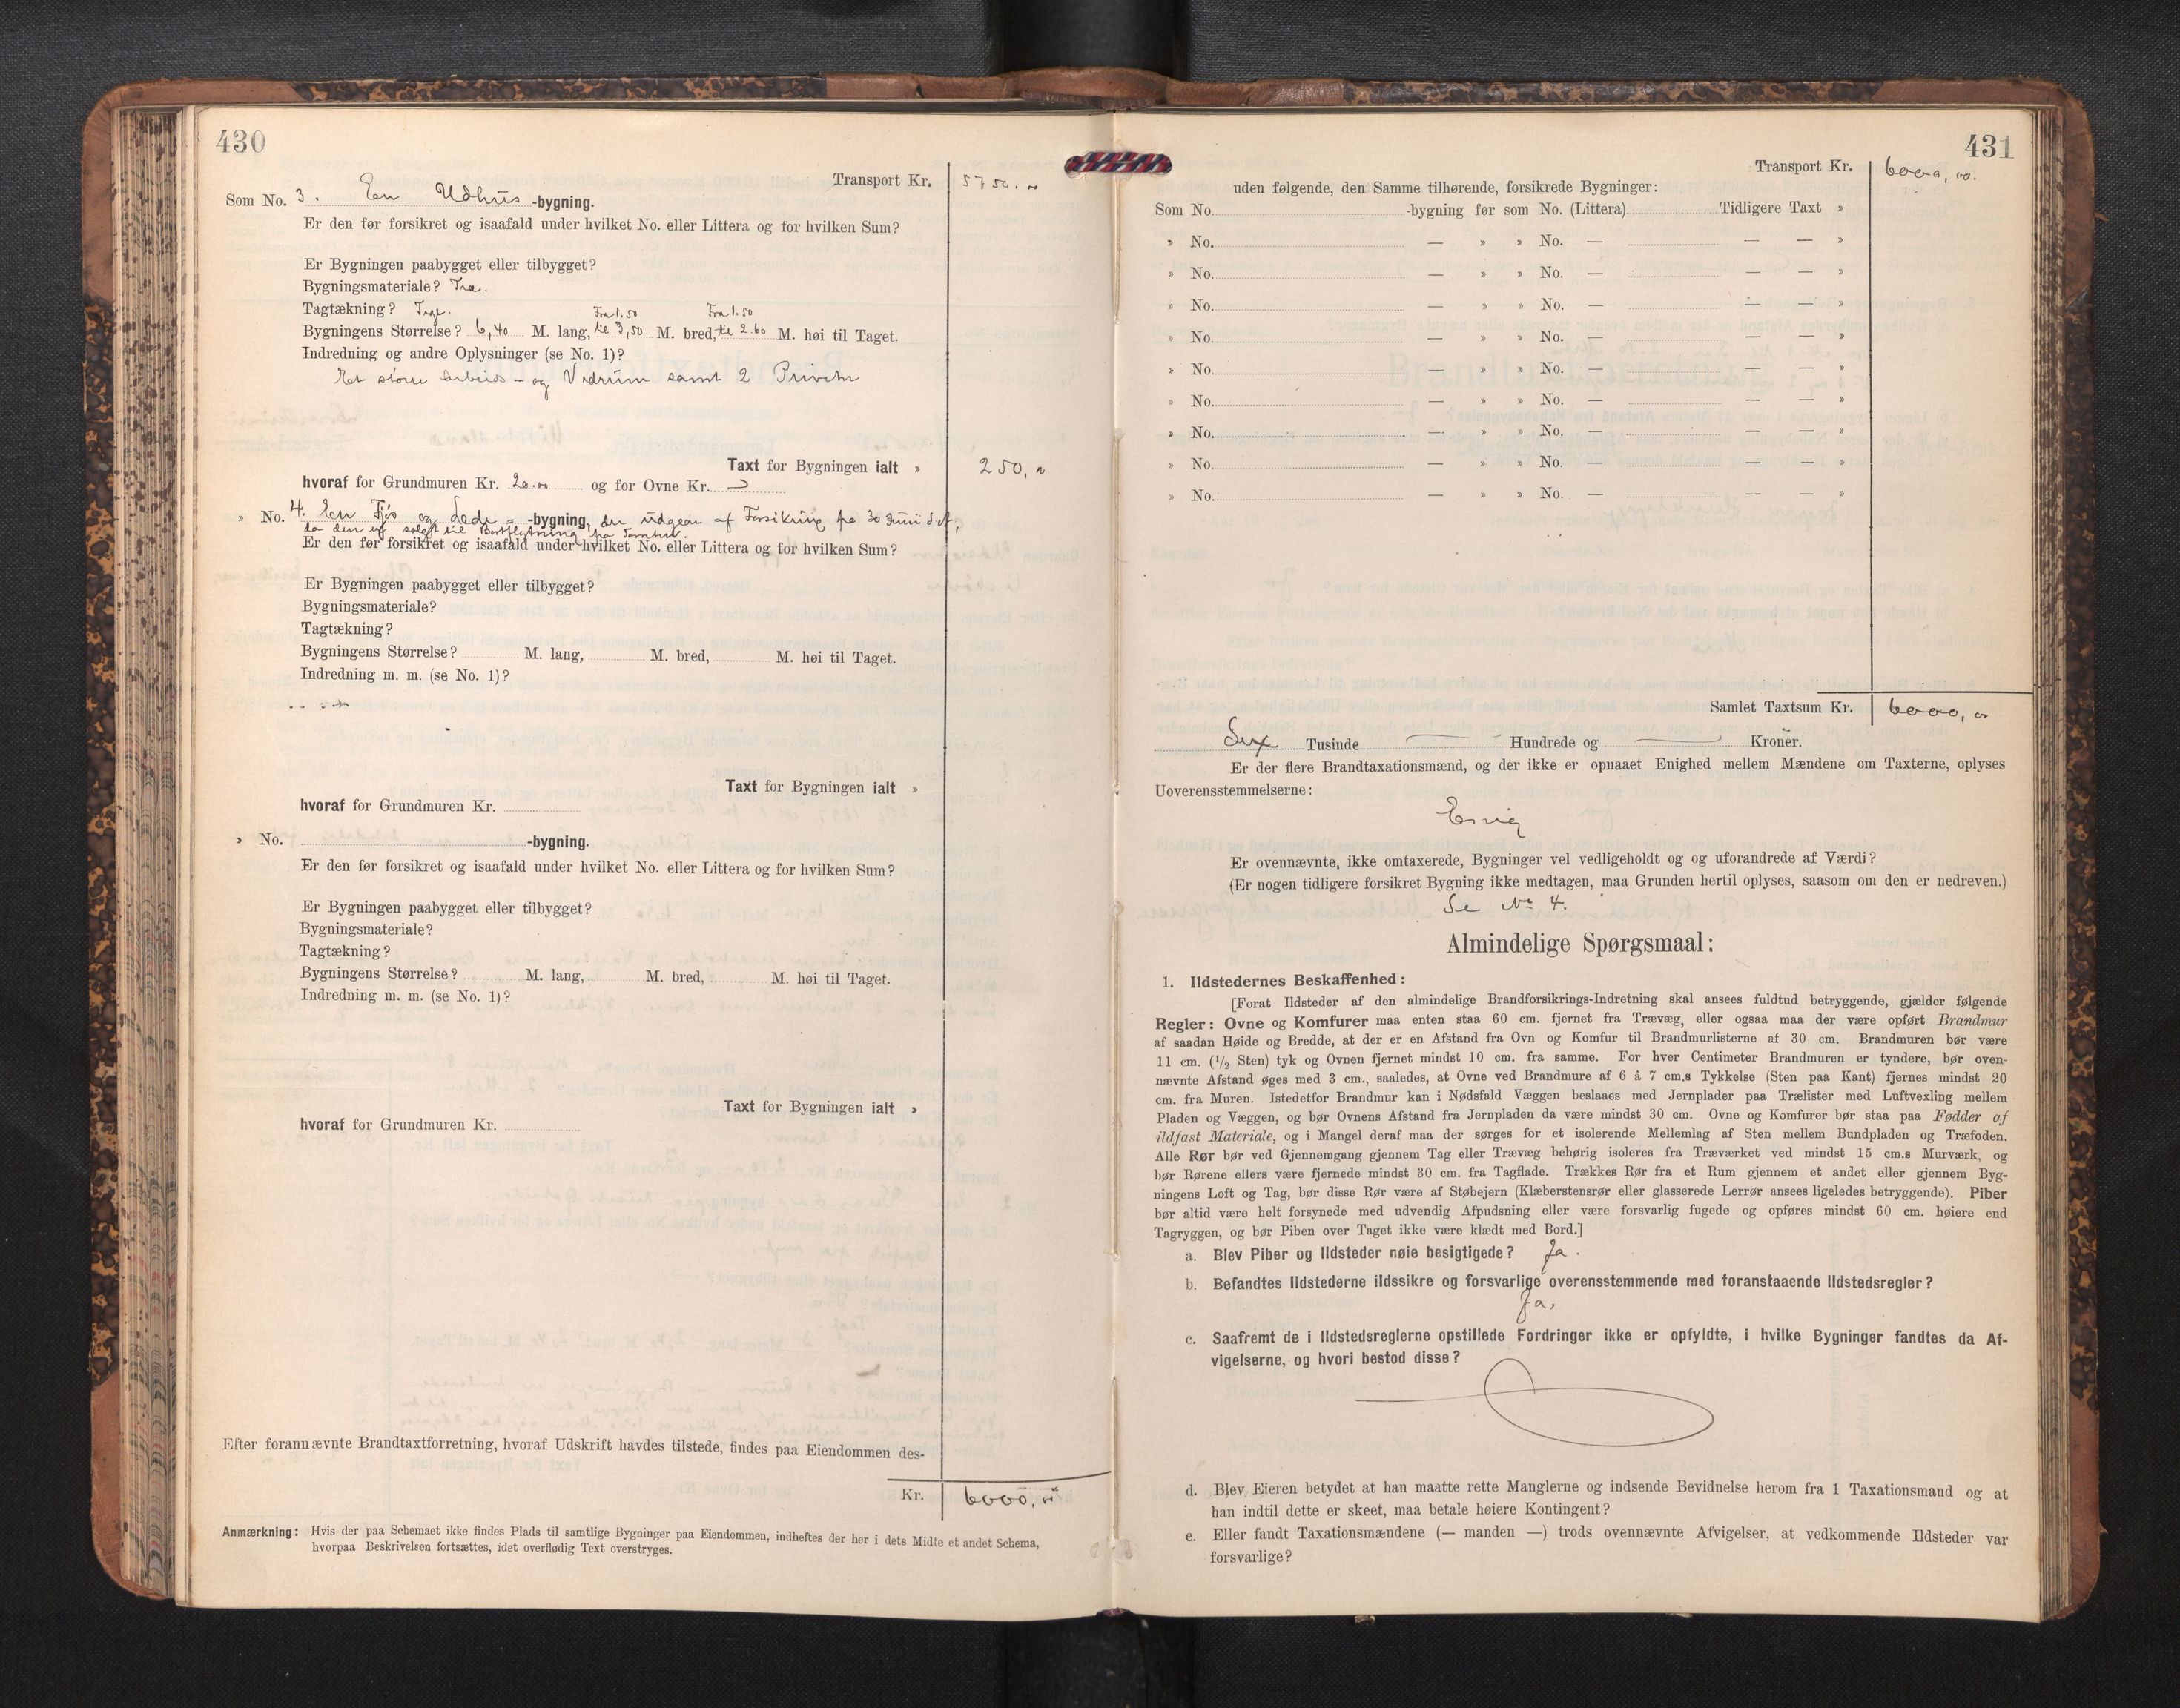 430
Transport Kr. 5750.
Som No. 3. En Udhus -bygning.
Er den før forsikret og isaafald under hvilket No. eller Littera og for hvilken Sum?
Er Bygningen paabygget eller tilbygget?
Bygningsmateriale? Træ.
Tagtækning?
Fra 1.50 Fra 1.50
Bygningens Størrelse? 6,40 M. lang, til 3,50 M. bred, til 2.60 M. høi til Taget.
Indredning og andre Oplysninger (se No. 1)?
Et større Arbeids- og Vedrum samt 2 Priveter
Taxt for Bygningen ialt » 250,
hvoraf for Grundmuren Kr. 20.00 og for Ovne Kr. —
» No. 4. En Fjøs og Lade- -bygning, der udgaar af Forsikring fra 30 Juni d.A,
da den er solgt til Bortflytning fra Tomten.
Er den før forsikret og isaafald under hvilket No. eller Littera og for hvilken Sum?
Er Bygningen paabygget eller tilbygget?
Bygningsmateriale?
Tagtækning?
Bygningens Størrelse? M. lang, M. bred, M. høi til Taget.
Indredning m. m. (se No. 1)?
Taxt for Bygningen ialt »
hvoraf for Grundmuren Kr.
» No. -bygning.
Er den før forsikret og isaafald under hvilket No. eller Littera og for hvilken Sum?
Er Bygningen paabygget eller tilbygget?
Bygningsmateriale?
Tagtækning?
Bygningens Størrelse? M. lang, M. bred, M. høi til Taget.
Indredning m. m. (se No. 1)?
Taxt for Bygningen ialt »
hvoraf for Grundmuren Kr.
Efter forannævnte Brandtaxtforretning, hvoraf Udskrift havdes tilstede, findes paa Eiendommen des-
Kr. 6000,
Anmærkning: Hvis der paa Schemaet ikke findes Plads til samtlige Bygninger paa Eiendommen, indheftes der her i dets Midte et andet Schema,
hvorpaa Beskrivelsen fortsættes, idet overflødig Text overstryges.
431
Transport Kr. 6000, 00.
uden følgende, den Samme tilhørende, forsikrede Bygninger:
Som No. -bygning før som No. (Littera) Tidligere Taxt »
» No. — » » No. — — — »
» No. — » » No. — — — »
» No. — » » No. — — — »
» No. — » » No. — — — »
» No. — » » No. — — — »
» No. — » » No. — — — »
» No. — » » No. — — — »
» No. — » » No. — — — »
» No. — » » No. — — — »
Samlet Taxtsum Kr. 6000, 00
Sex Tusinde — Hundrede og — Kroner.
Er der flere Brandtaxationsmænd, og der ikke er opnaaet Enighed mellem Mændene om Taxterne, oplyses
Uoverensstemmelserne:
Enig
Er ovennævnte, ikke omtaxerede, Bygninger vel vedligeholdt og og uforandrede af Værdi?
(Er nogen tidligere forsikret Bygning ikke medtagen, maa Grunden hertil oplyses, saasom om den er nedreven.)
Se No 4.
Almindelige Spørgsmaal:
1. Ildstedernes Beskaffenhed:
[Forat Ildsteder af den almindelige Brandforsikrings-Indretning skal ansees fuldtud betryggende, gjælder følgende
Regler: Ovne og Komfurer maa enten staa 60 cm. fjernet fra Trævæg, eller ogsaa maa der være opført Brandmur
af saadan Høide og Bredde, at der er en Afstand fra Ovn og Komfur til Brandmurlisterne af 30 cm. Brandmuren bør være
11 cm. (1/2 Sten) tyk og Ovnen fjernet mindst 10 cm. fra samme. For hver Centimeter Brandmuren er tyndere, bør oven-
nævnte Afstand øges med 3 cm., saaledes, at Ovne ved Brandmure af 6 à 7 cm.s Tykkelse (Sten paa Kant) fjernes mindst 20
cm. fra Muren. Istedetfor Brandmur kan i Nødsfald Væggen beslaaes med Jernplader paa Trælister med Luftvexling mellem
Pladen og Væggen, og bør Ovnens Afstand fra Jernpladen da være mindst 30 cm. Ovne og Komfurer bør staa paa Fødder af
ildfast Materiale, og i Mangel deraf maa der sørges for et isolerende Mellemlag af Sten mellem Bundpladen og Træfoden.
Alle Rør bør ved Gjennemgang gjennem Tag eller Trævæg behørig isoleres fra Træværket ved mindst 15 cm.s Murværk, og
bør Rørene ellers være fjernede mindst 30 cm. fra Tagflade. Trækkes Rør fra et Rum gjennem et andet eller gjennem Byg-
ningens Loft og Tag, bør disse Rør være af Støbejern (Klæberstensrør eller glasserede Lerrør ansees ligeledes betryggende). Piber
bør altid være helt forsynede med udvendig Afpudsning eller være forsvarlig fugede og opføres mindst 60 cm. høiere end
Tagryggen, og bør Piben over Taget ikke være klædt med Bord.]
a. Blev Piber og Ildsteder nøie besigtigede? Ja.
b. Befandtes Ildstederne ildssikre og forsvarlige overensstemmende med foranstaaende Ildstedsregler?
Ja.
c. Saafremt de i Ildstedsreglerne opstillede Fordringer ikke er opfyldte, i hvilke Bygninger fandtes da Af-
vigelserne, og hvori bestod disse?
d. Blev Eieren betydet at han maatte rette Manglerne og indsende Bevidnelse herom fra 1 Taxationsmand og at
han indtil dette er skeet, maa betale høiere Kontingent?
e. Eller fandt Taxationsmændene (— manden —) trods ovennævnte Afvigelser, at vedkommende Ildsteder var
forsvarlige?